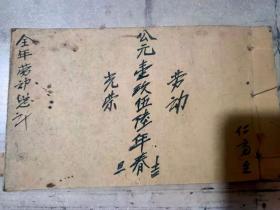 劳动
公元壹玖伍陆年春吉旦
光荣
全年劳动总计